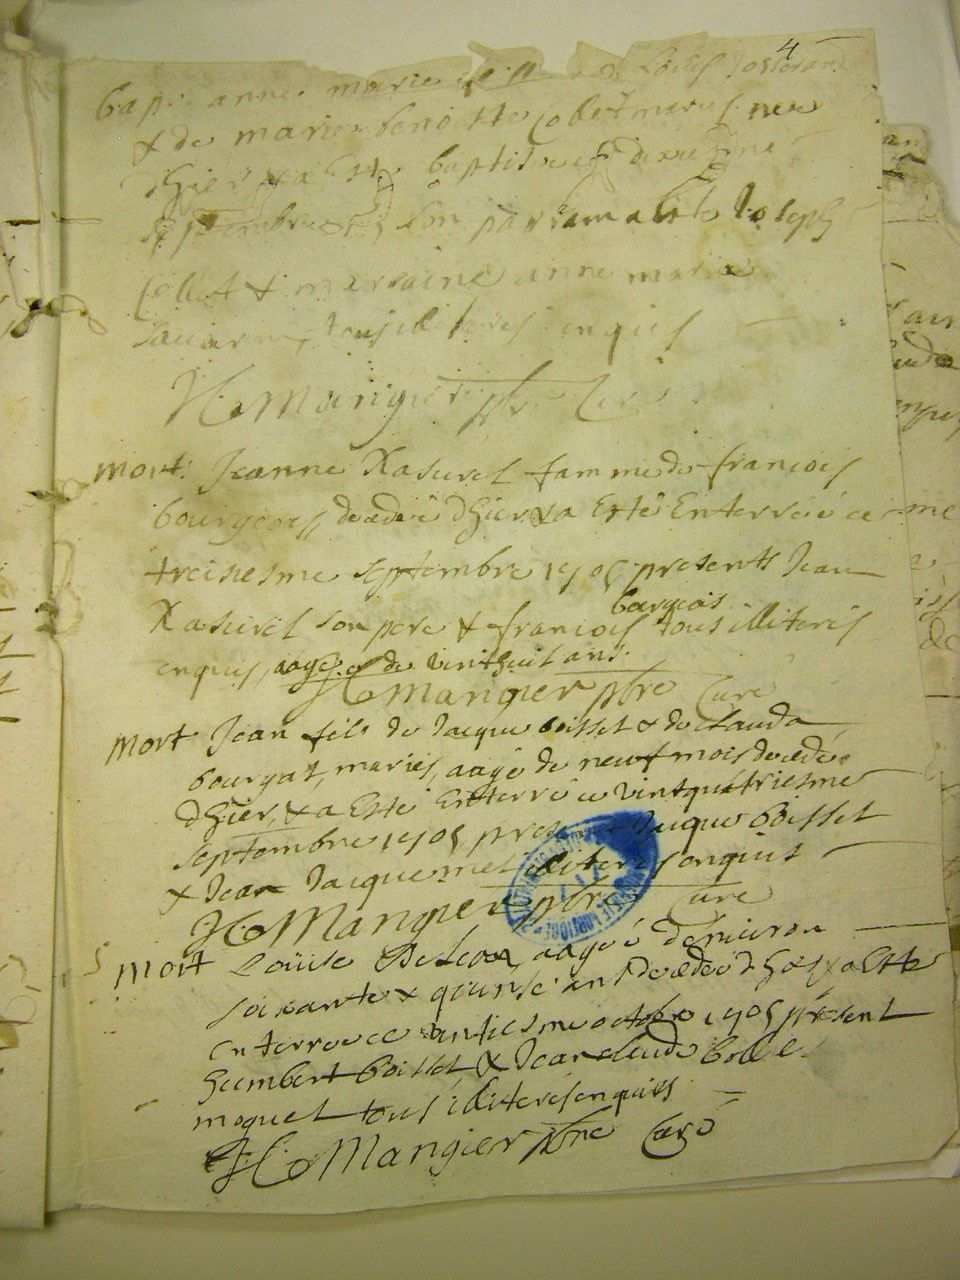 4
bap: anne marie Louis
& de marie benoitte Collet maries nee
dhier & a Esté baptisee
septembre son parrain a Esté Joseph
Collet & marraine anne marie
tous illiteres enquis
H. Mangier pbre Curé
mort: Jeanne Rasurel famme de francois
bourgeois decedeé dhier & a Esté Enterreé ce
treisiesme septembre 1705 presents Jean
Rasurel son pere & francois bourgeois tous illiteres
enquis, aagee de vinthuit ans.
H. Mangier pbre Curé
mort Jean fils de Jacque boisset & de Clauda
bourgat, mariés, aagé de neuf mois decedé
dhier, & a Esté Enterré ce vintquatriesme
septembre 1705 present Jacque boisset
& Jean Jacquemet illiteres enquis
H. Mangier pbre Curé
mort Louise aagée denviron
soixante & quinse ans decedeé dhier & a Esté
enterree ce vintiesme octobre 1705 present
humbert boisset & Jean claude
moquet tous illiteres enquis
H. Mangier pbre Curé